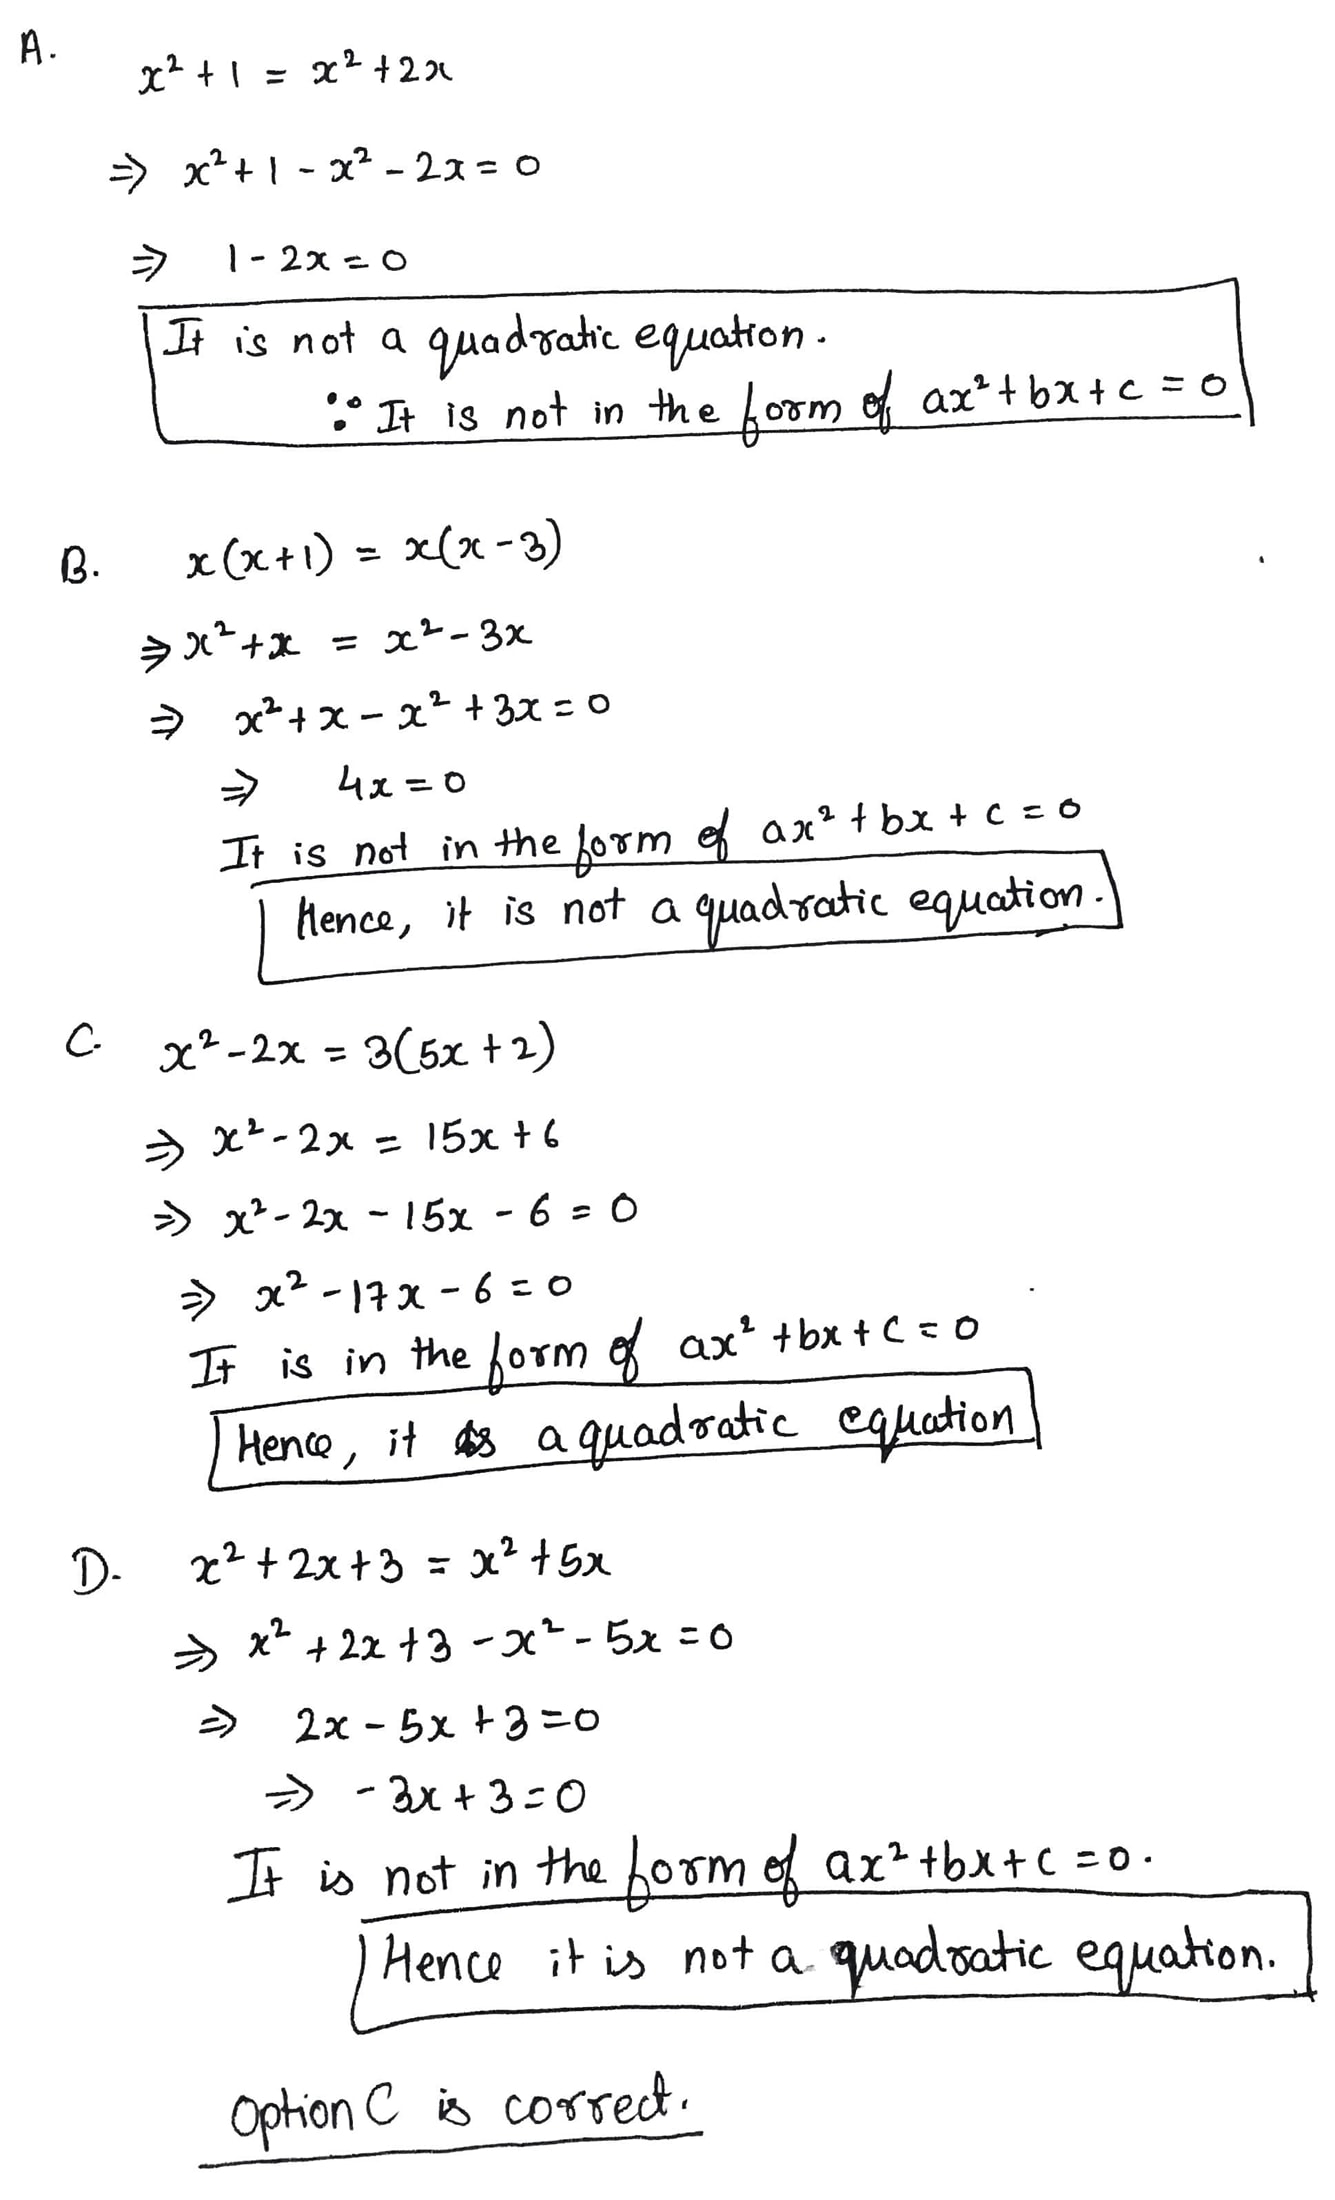 A.
x² + 1 = x² + 2x
⇒ x² + 1 - x² - 2x = 0
⇒ 1 - 2x = 0
It is not a quadratic equation.
∵ It is not in the form of ax² + bx + c = 0
B. x(x+1) = x(x-3)
⇒ x² + x = x² - 3x
⇒ x² + x - x² + 3x = 0
⇒ 4x = 0
It is not in the form of ax² + bx + c = 0
Hence, it is not a quadratic equation.
C. x² - 2x = 3(5x + 2)
⇒ x² - 2x = 15x + 6
⇒ x² - 2x - 15x - 6 = 0
⇒ x² - 17x - 6 = 0
It is in the form of ax² + bx + c = 0
Hence, it is a quadratic equation
D. x² + 2x + 3 = x² + 5x
⇒ x² + 2x + 3 - x² - 5x = 0
⇒ 2x - 5x + 3 = 0
⇒ -3x + 3 = 0
It is not in the form of ax² + bx + c = 0.
Hence it is not a quadratic equation.
Option C is correct.